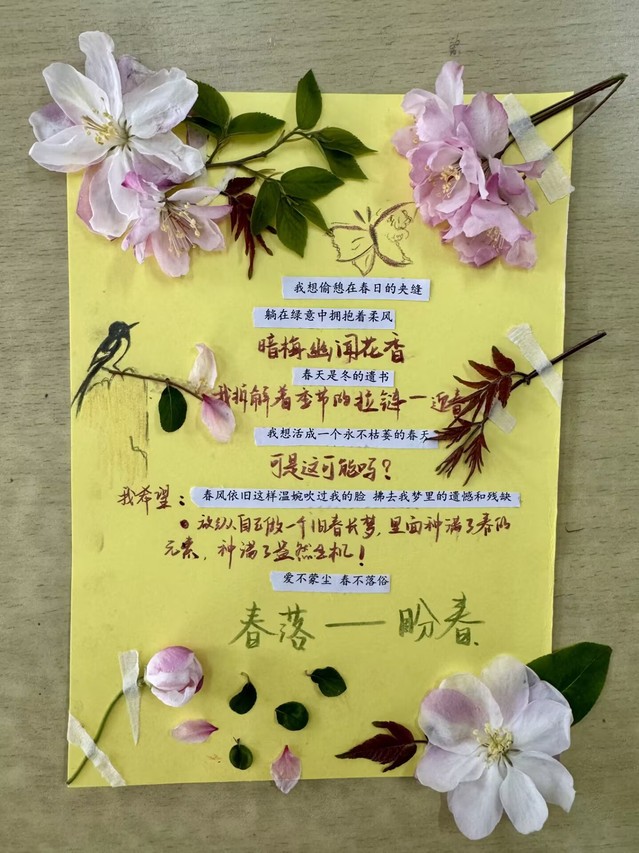 我想偷憩在春日的夹缝
躺在绿意中拥抱着柔风
暗梅幽闻花香
春天是冬的遗书
我拆解着季节的拉链一迎春
我想活成一个永不枯萎的春天
可是这可能吗？
我希望： 春风依旧这样温婉吹过我的脸 拂去我梦里的遗憾和残缺
放纵自己做一个旧春长梦，里面种满了春的
元素，种满了盎然生机！
爱不蒙尘 春不落俗
春落——盼春